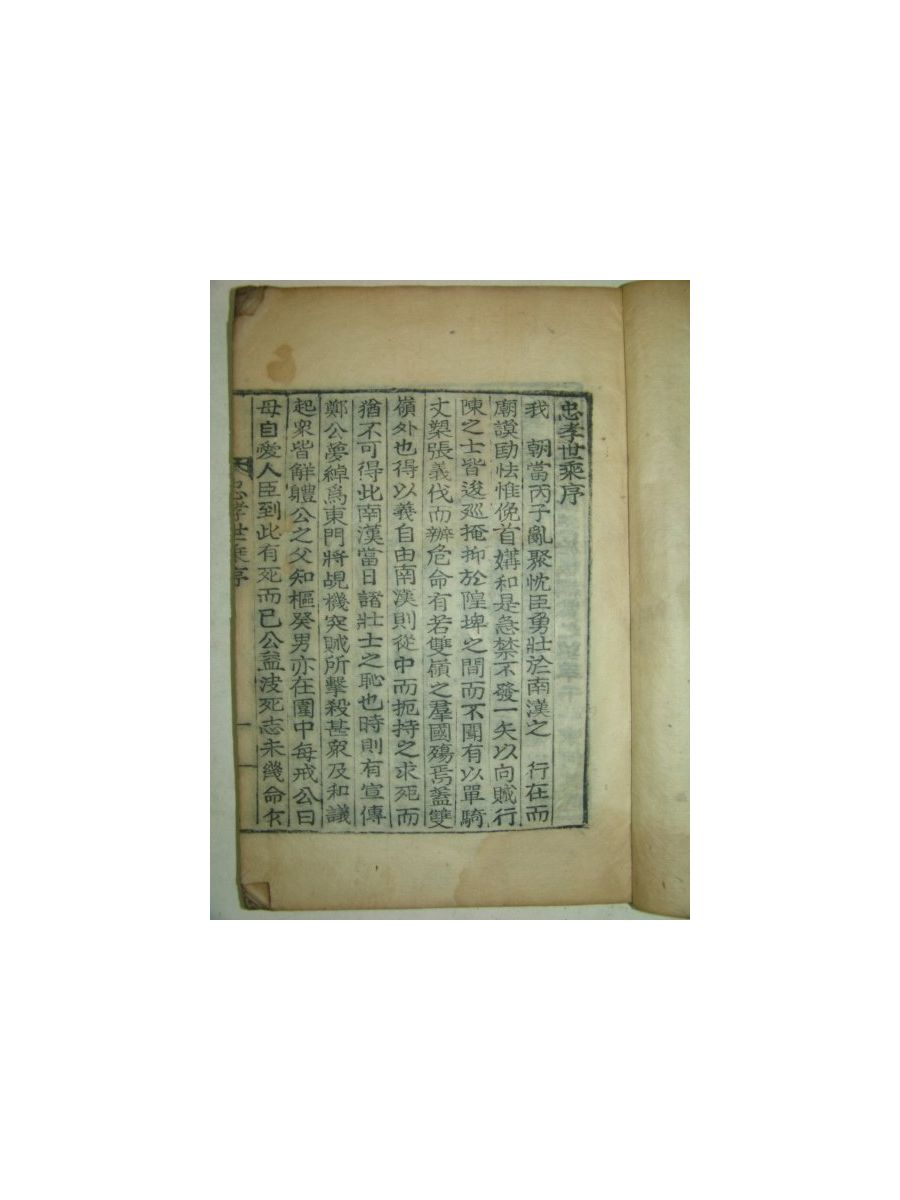 忠孝世乘序
我　朝當丙子亂聚忱臣勇壯於南漢之　行在而
廟謨劻怯惟俛首媾和是急禁不發一矢以向賊行
陳之士皆逡廵掩抑於隍埤之間而不聞有以單騎
丈槊張義伐而辦危命有若雙嶺之羣國殤焉盖雙
嶺外也得以義自由南漢則從中而扼持之求死而
猶不可得此南漢當日諸壯士之恥也時則有宣傳
鄭公夢綽爲東門將覘機突賊所擊殺甚衆及和議
起衆皆解軆公之父知樞癸男亦在圍中每戒公曰
母自愛人臣到此有死而已公益决死志未幾命
忠孝世乘序
一